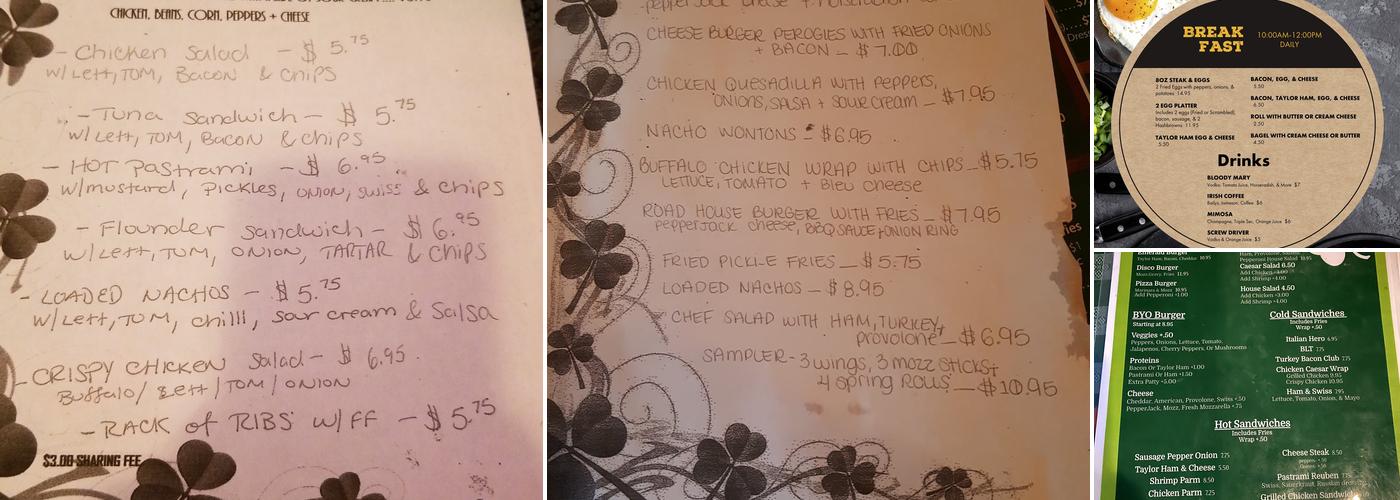 CHICKEN, BEANS, CORN, PEPPERS + CHEESE
- Chicken Salad - $ 5.75
w/ Lett, TOM, Bacon & chips
- Tuna Sandwich - $ 5.75
w/ Lett, TOM, Bacon & chips
- HOT Pastrami - $ 6.95
w/mustard, Pickles, ONION, SWISS & chips
- Flounder Sandwich - $ 6.95
w/Lett, TOM, ONION, TARTAR & chips
- LOADED NACHOS - $ 5.75
w/Lett, TOM, chilli, sour cream & Salsa
- CRISPY CHICKEN Salad - $ 6.95
Buffalo/ Lett/TOM/ONION
- RACK of RIBS w/FF - $ 5.75
$3.00 SHARING FEE
CHEESE BURGER PEROGIES WITH FRIED ONIONS
+ BACON - $ 7.00
CHICKEN QUESADILLA WITH PEPPERS,
ONIONS, SALSA + SOUR CREAM - $7.95
NACHO WONTONS - $6.95
BUFFALO CHICKEN WRAP WITH CHIPS - $5.75
LETTUCE, TOMATO + Bleu cheese
ROAD HOUSE BURGER WITH FRIES - $7.95
pepperjack cheese, BBQ SAUCE, ONION RING
FRIED PICKLE FRIES - $5.75
LOADED NACHOS - $8.95
CHEF SALAD WITH HAM, TURKEY,
provolone - $6.95
SAMPLER - 3 wings, 3 mozz sticks +
4 spring Rolls - $10.95
BREAK
FAST
10:00AM-12:00PM
DAILY
8OZ STEAK & EGGS
2 Fried Eggs with peppers, onions, &
potatoes 14.95
2 EGG PLATTER
Includes 2 eggs (Fried or Scrambled),
bacon, sausage, & 2
Hashbrowns 11.95
TAYLOR HAM EGG & CHEESE
5.50
BACON, EGG, & CHEESE
5.50
BACON, TAYLOR HAM, EGG, & CHEESE
6.50
ROLL WITH BUTTER OR CREAM CHEESE
2.50
BAGEL WITH CREAM CHEESE OR BUTTER
4.50
Drinks
BLOODY MARY
Vodka, Tomato Juice, Horseradish, & More $7
IRISH COFFEE
Baileys, Jameson, Coffee $6
MIMOSA
Champagne, Triple Sec, Orange Juice $6
SCREW DRIVER
Vodka & Orange Juice $5
Taylor Ham, Bacon, Cheddar 10.95
Disco Burger
Mozz, Gravy, Fries 11.95
Pizza Burger
Marinara & Mozz 10.95
Add Pepperoni +1.00
BYO Burger
Starting at 8.95
Veggies +.50
Peppers, Onions, Lettuce, Tomato,
Jalapenos, Cherry Peppers, Or Mushrooms
Proteins
Bacon Or Taylor Ham +1.00
Pastrami Or Ham +1.50
Extra Patty +5.00
Cheese
Cheddar, American, Provolone, Swiss +.50
PepperJack, Mozz, Fresh Mozzarella +.75
Pepperoni House Salad 10.95
Caesar Salad 6.50
Add Chicken +3.00
Add Shrimp +4.00
House Salad 4.50
Add Chicken +3.00
Add Shrimp +4.00
Cold Sandwiches
Includes Fries
Wrap +.50
Italian Hero 6.95
BLT 7.75
Turkey Bacon Club 7.75
Chicken Caesar Wrap
Grilled Chicken 9.95
Crispy Chicken 10.95
Ham & Swiss 7.95
Lettuce, Tomato, Onion, & Mayo
Hot Sandwiches
Includes Fries
Wrap +.50
Sausage Pepper Onion 7.75
Taylor Ham & Cheese 5.50
Shrimp Parm 8.50
Chicken Parm 7.25
Cheese Steak 8.50
peppers +.50
Onions +.50
Pastrami Reuben 7.75
Swiss, Sauerkraut, Russian
Grilled Chicken